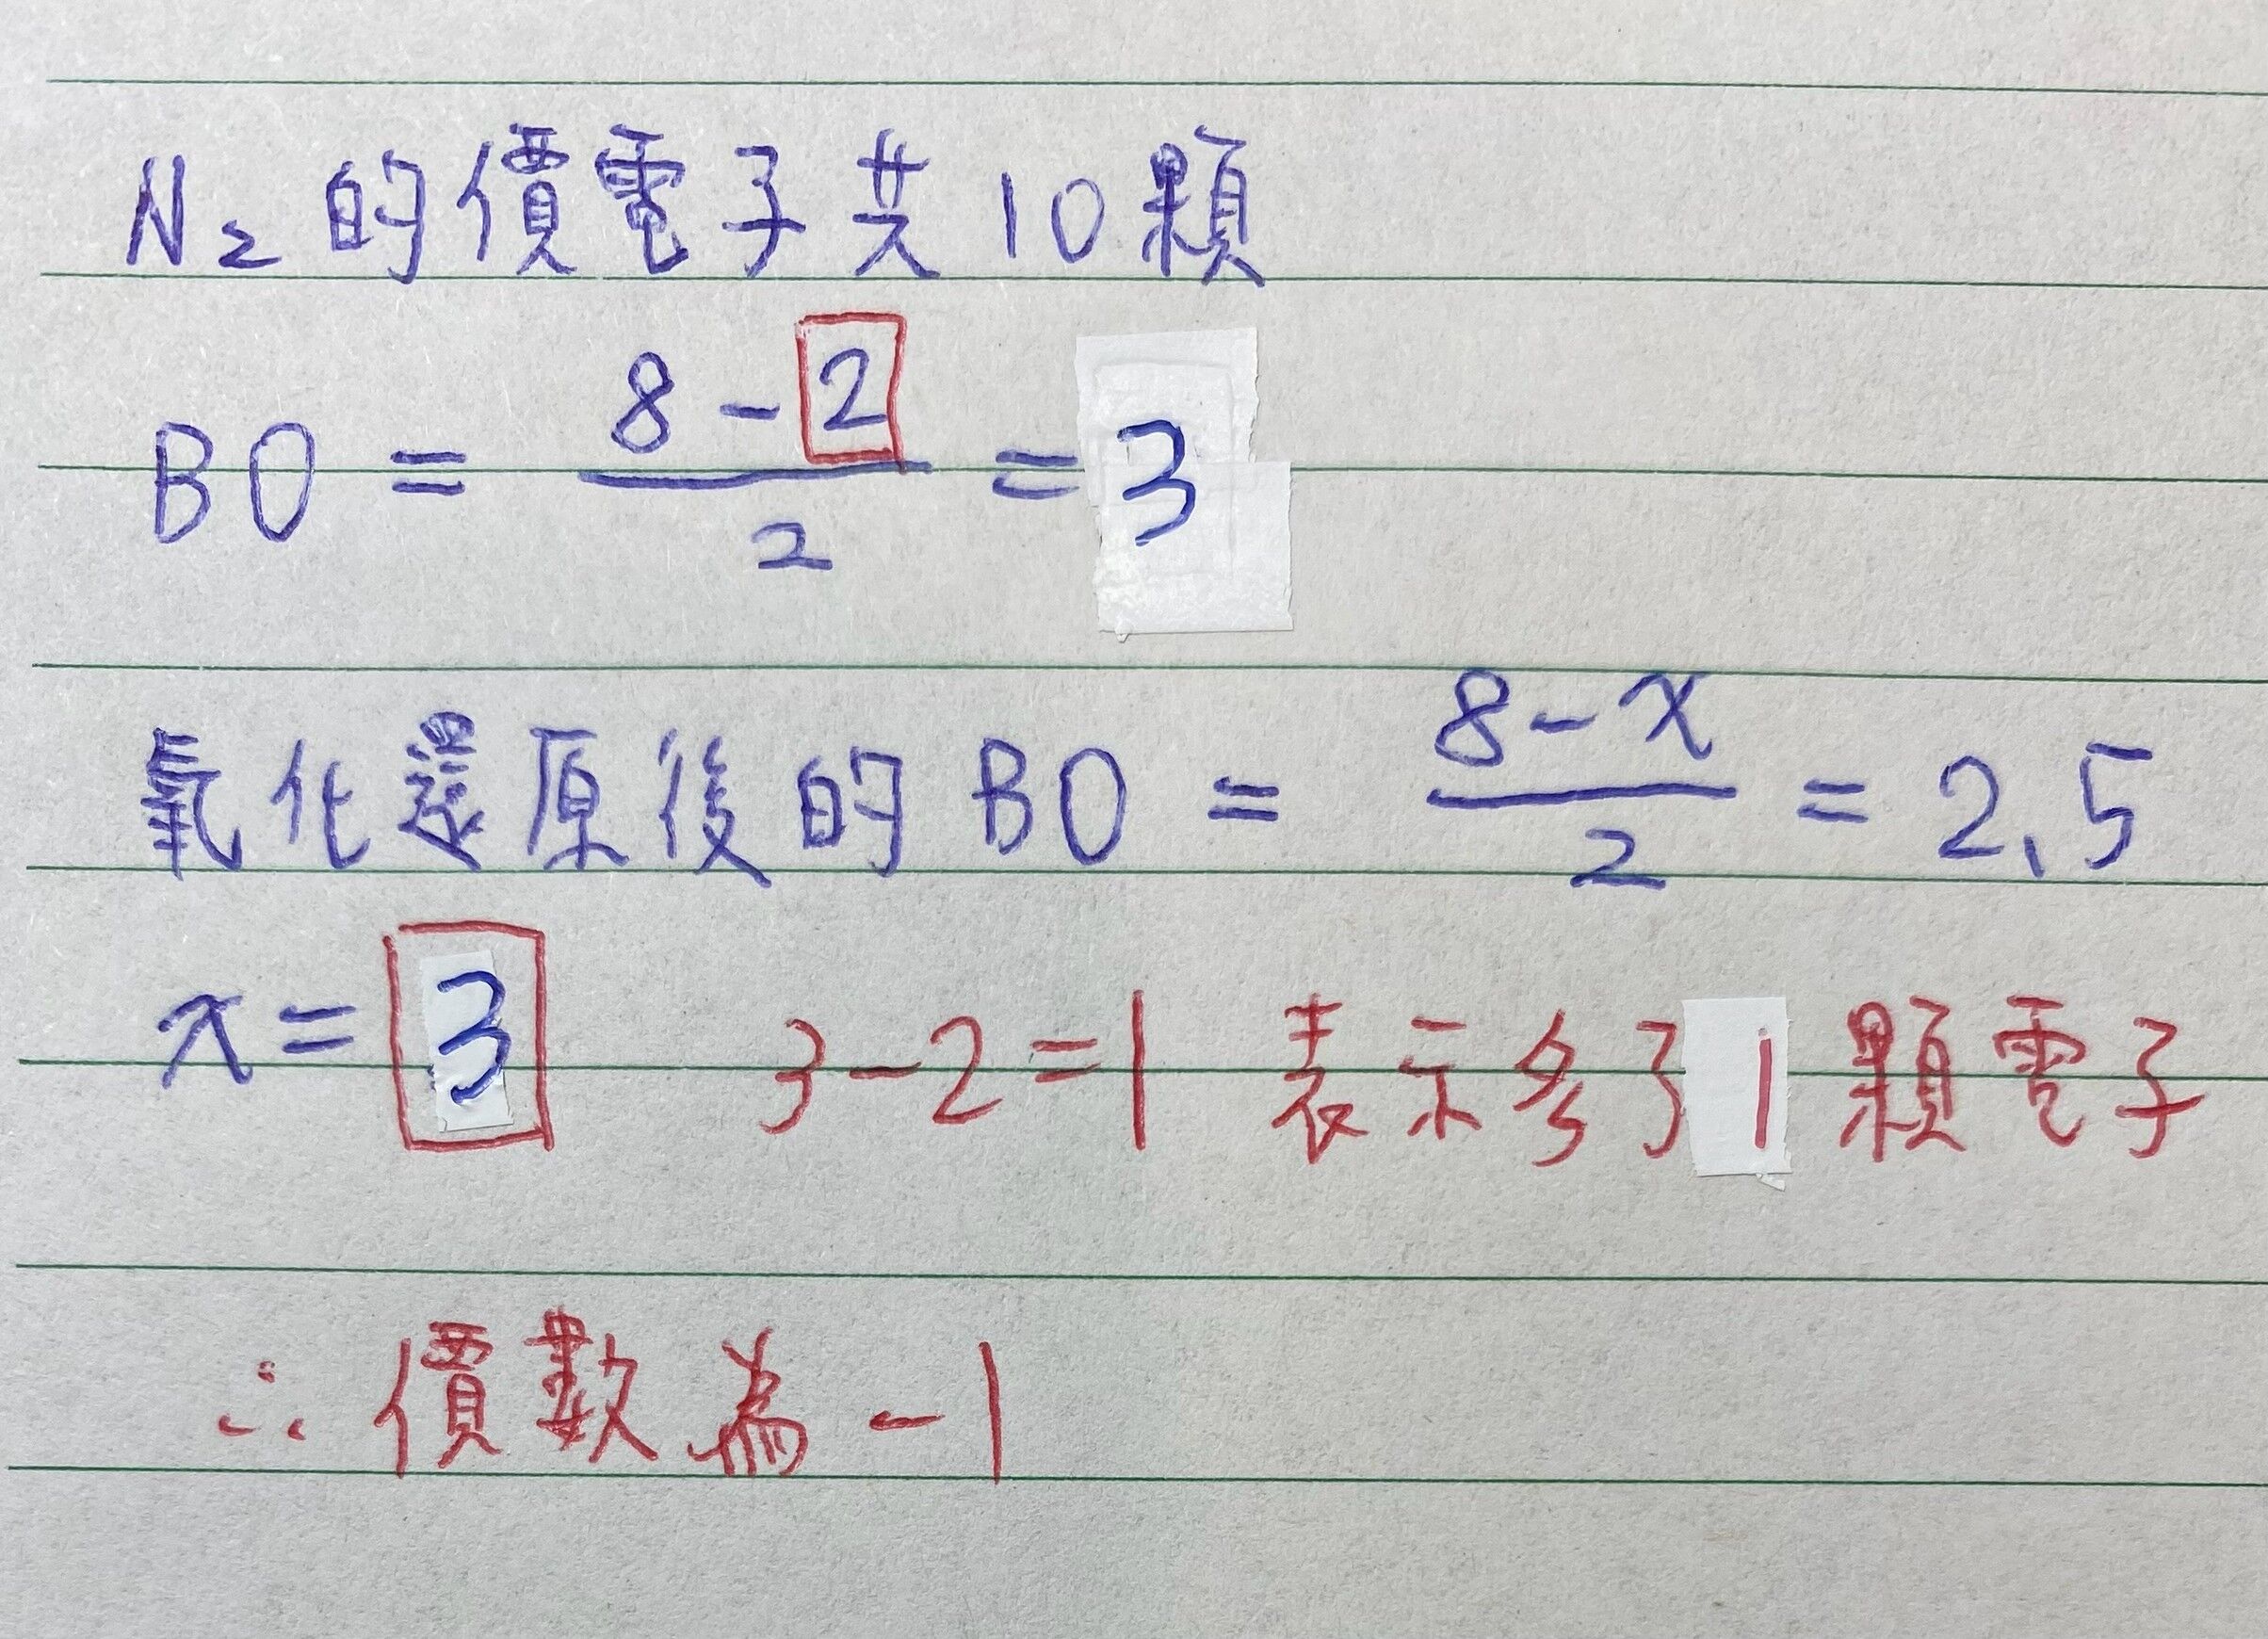 N₂的價電子共10顆
BO = (8-2)/2 = 3
氧化還原後的BO = (8-x)/2 = 2.5
x = 3 3-2=1 表示多了1顆電子
∴價數為-1